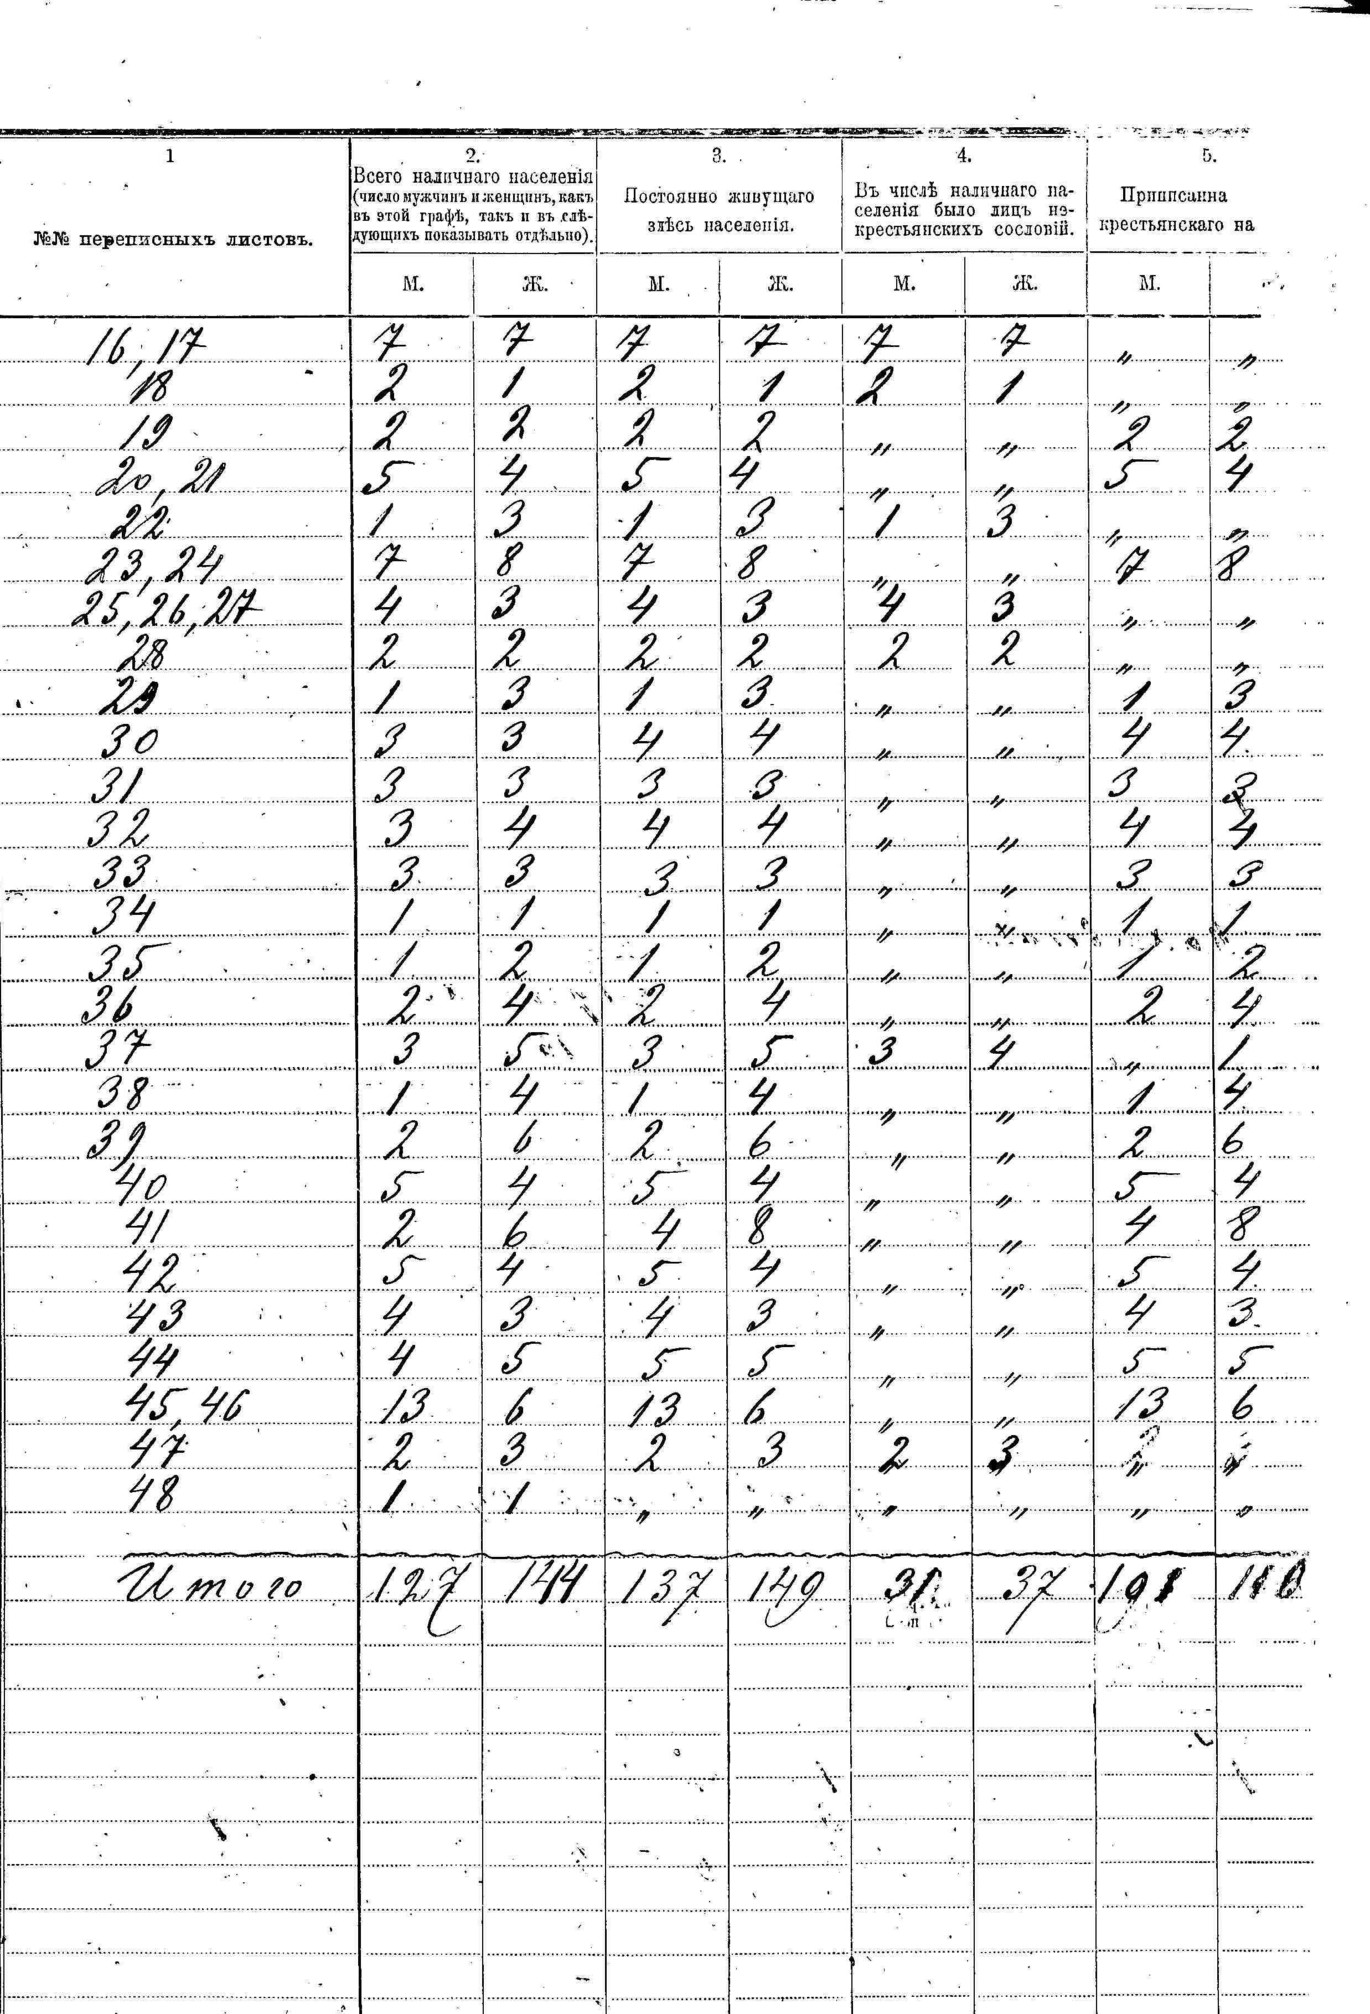 1 2. 3. 4. 5.
№№ переписныхъ листовъ.
Всего наличнаго населенія
(число мужчинъ и женщинъ, какъ
въ этой графѣ, такъ и въ слѣ-
дующихъ показывать отдѣльно).
Постоянно живущаго
здѣсь населенія.
Въ числѣ наличнаго на-
селенія было лицъ не-
крестьянскихъ сословій.
Приписанна
крестьянскаго на
М. Ж. М. Ж. М. Ж. М.
16, 17 7 7 7 7 7 7 „ „
18 2 1 2 1 2 1 „ „
19 2 2 2 2 „ „ 2 2
20, 21 5 4 5 4 „ „ 5 4
22 1 3 1 3 1 3 „ „
23, 24 7 8 7 8 „ „ 7 8
25, 26, 27 4 3 4 3 4 3 „ „
28 2 2 2 2 2 2 „ „
29 1 3 1 3 „ „ 1 3
30 3 3 4 4 „ „ 4 4
31 3 3 3 3 „ „ 3 3
32 3 4 4 4 „ „ 4 4
33 3 3 3 3 „ „ 3 3
34 1 1 1 1 „ „ 1 1
35 1 2 1 2 „ „ 1 2
36 2 4 2 4 „ „ 2 4
37 3 5 3 5 3 4 „ 1
38 1 4 1 4 „ „ 1 4
39 2 6 2 6 „ „ 2 6
40 5 4 5 4 „ „ 5 4
41 2 6 4 8 „ „ 4 8
42 5 4 5 4 „ „ 5 4
43 4 3 4 3 „ „ 4 3
44 4 5 5 5 „ „ 5 5
45, 46 13 6 13 6 „ „ 13 6
47 2 3 2 3 2 3 „ „
48 1 1 „ „ „ „ „ „
Итого 127 144 137 149 31 37